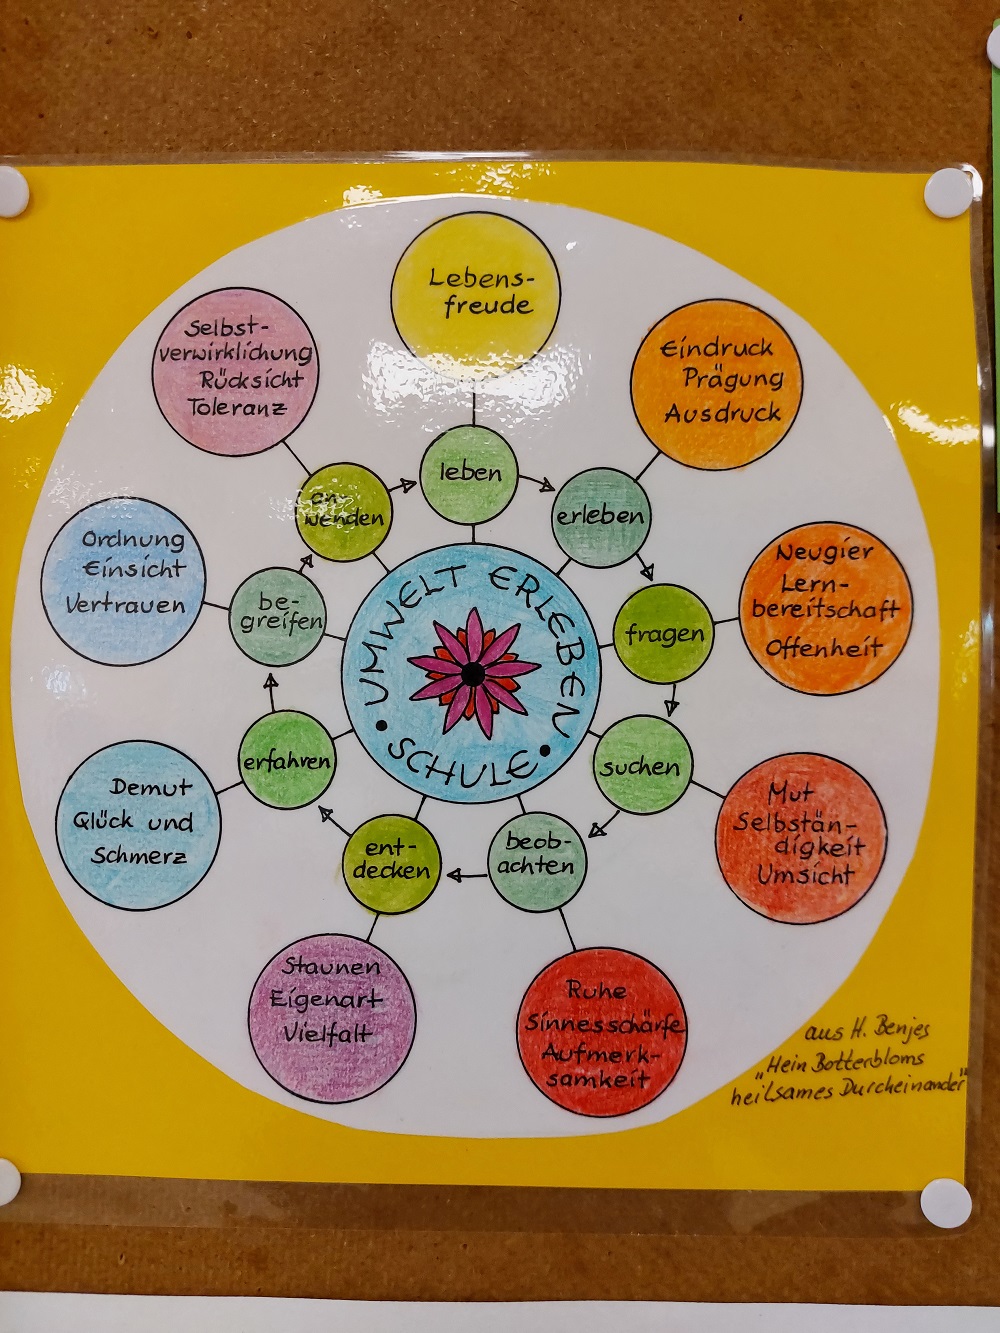 Lebens-
freude
Eindruck
Prägung
Ausdruck
Neugier
Lern-
bereitschaft
Offenheit
Mut
Selbstän-
digkeit
Umsicht
Ruhe
Sinnesschärfe
Aufmerk-
samkeit
Staunen
Eigenart
Vielfalt
Demut
Glück und
Schmerz
Ordnung
Einsicht
Vertrauen
Selbst-
verwirklichung
Rücksicht
Toleranz
leben
erleben
fragen
suchen
beob-
achten
ent-
decken
erfahren
be-
greifen
an-
wenden
UMWELT ERLEBEN
• SCHULE •
aus H. Benjes
"Hein Botterbloms
heilsames Durcheinander"